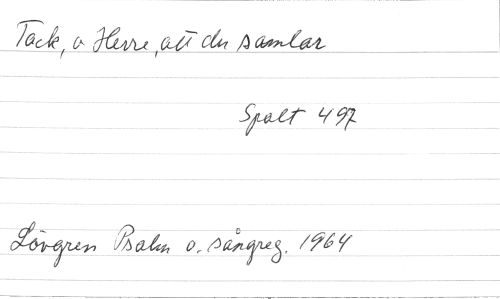 Tack, o Herre, att du samlar
Spalt 497
Lövgren Psalm o. sångreg. 1964